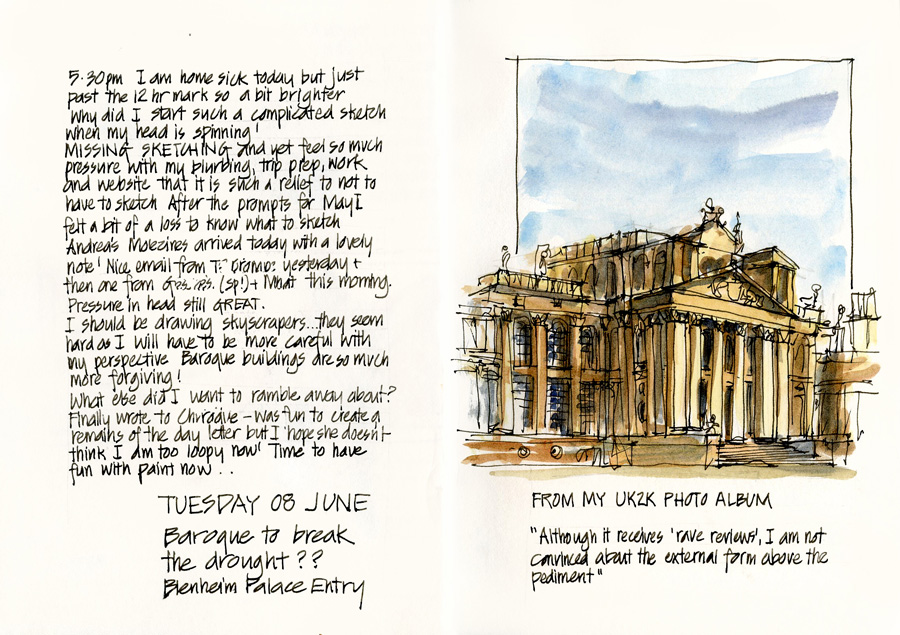 5.30pm I am home sick today but just
past the 12 hr mark so a bit brighter
Why did I start such a complicated sketch
when my head is spinning!
MISSING SKETCHING and yet feel so much
pressure with my blurbing, trip prep, work
and website that it is such a relief to not to
have to sketch After the prompts for May I
felt a bit of a loss to know what to sketch
Andrea's Molezines arrived today with a lovely
note! Nice email from yesterday +
then one from (sp!) + Matt this morning.
Pressure in head still GREAT.
I should be drawing skyscrapers...they seem
hard as I will have to be more careful with
my perspective Baroque buildings are so much
more forgiving!
What else did I want to ramble away about?
Finally wrote to - was fun to create a
remains of the day letter but I hope she doesn't
think I am too loopy now! Time to have
fun with paint now . .
TUESDAY 08 JUNE
Baroque to break
the drought ??
Blenheim Palace Entry
FROM MY UK2K PHOTO ALBUM
"Although it receives 'rave reviews', I am not
convinced about the external form above the
pediment"